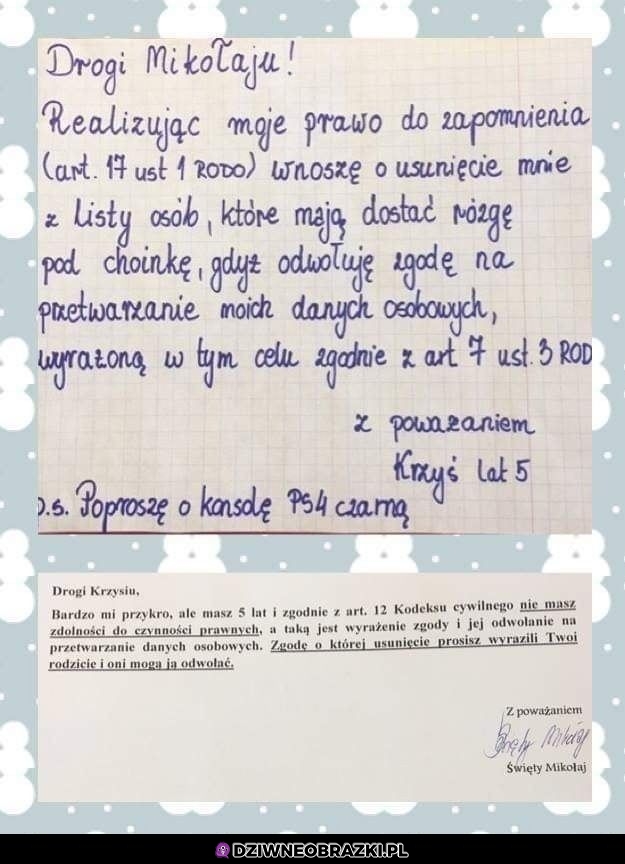 Drogi Mikołaju!
Realizując moje prawo do zapomnienia
(art. 17 ust 1 RODO) wnoszę o usunięcie mnie
z Listy osób, które mają dostać rózgę
pod choinkę, gdyż odwołuję zgodę na
przetwarzanie moich danych osobowych,
wyrażoną w tym celu zgodnie z art 7 ust. 3 ROD
z poważaniem
Krzyś lat 5
p.s. Poproszę o konsolę PS4 czarną
Drogi Krzysiu,
Bardzo mi przykro, ale masz 5 lat i zgodnie z art. 12 Kodeksu cywilnego nie masz
zdolności do czynności prawnych, a taką jest wyrażenie zgody i jej odwołanie na
przetwarzanie danych osobowych. Zgodę o której usunięcie prosisz wyrazili Twoi
rodzicie i oni mogą ją odwołać.
Z poważaniem
Święty Mikołaj
Święty Mikołaj
DZIWNEOBRAZKI.PL